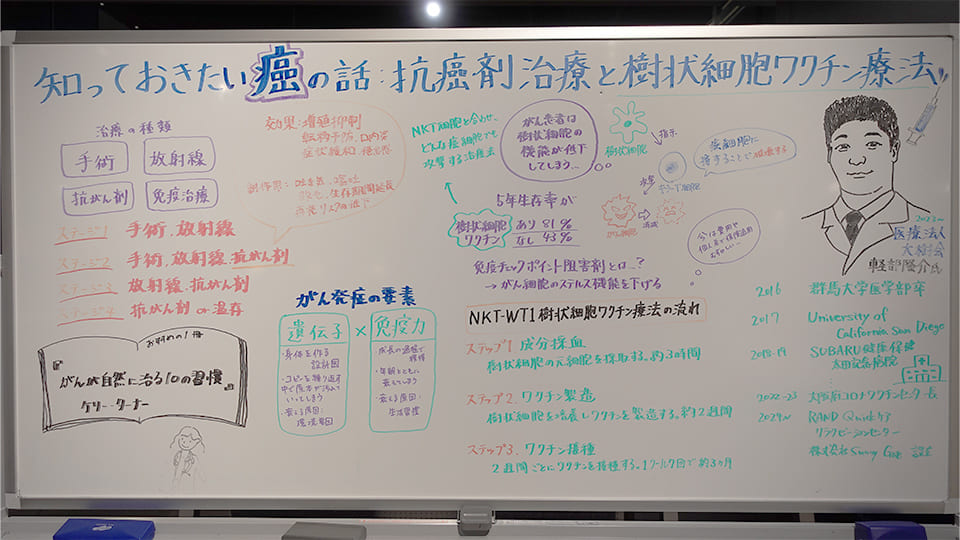 知っておきたい癌の話:抗癌剤治療と樹状細胞ワクチン療法
治療の種類
手術
放射線
抗がん剤
免疫治療
ステージ1 手術、放射線
ステージ2 手術、放射線、抗がん剤
ステージ3 放射線、抗がん剤
ステージ4 抗がん剤 or 温存
効果:増殖抑制
転移予防
症状緩和
副作用:吐き気
再発リスクの低下
おすすめの1冊
『がんが自然に治る10の習慣』
ケリー・ターナー
がん発症の要素
遺伝子 × 免疫力
・身体を作る
設計図
・コピーを繰り返す
いってしまう
・衰える原因:
環境要因
成長の過程で
獲得
・年齢とともに
衰えてしまう
・衰える原因:
生活習慣
NKT細胞と合わせ、
どんな癌細胞でも
攻撃する治療法
がん患者は
樹状細胞の
機能が低下
してしまう…
樹状細胞
指示
攻撃
がん細胞
消滅
5年生存率が
樹状細胞
ワクチン
あり 81%
なし 43%
免疫チェックポイント阻害剤とは…?
→がん細胞のステルス機能を下げる
NKT-WT1樹状細胞ワクチン療法の流れ
ステップ1 成分採血
樹状細胞の元細胞を採取する。約3時間
ステップ2. ワクチン製造
樹状細胞を培養しワクチンを製造する。約2週間
ステップ3、ワクチン接種
2週間ごとにワクチンを接種する。1クール7回で約3ヶ月
2023〜
医療法人
大樹会
軽部隆介氏
2016 群馬大学医学部卒
2017 University of
California San Diego
2018-19 SUBARU健康保健
太田記念病院
2022-23 大阪府コロナワクチンセンター長
2024〜 RAND Quickケア
クラクビーションセンター
株式会社Sunny Gate 設立